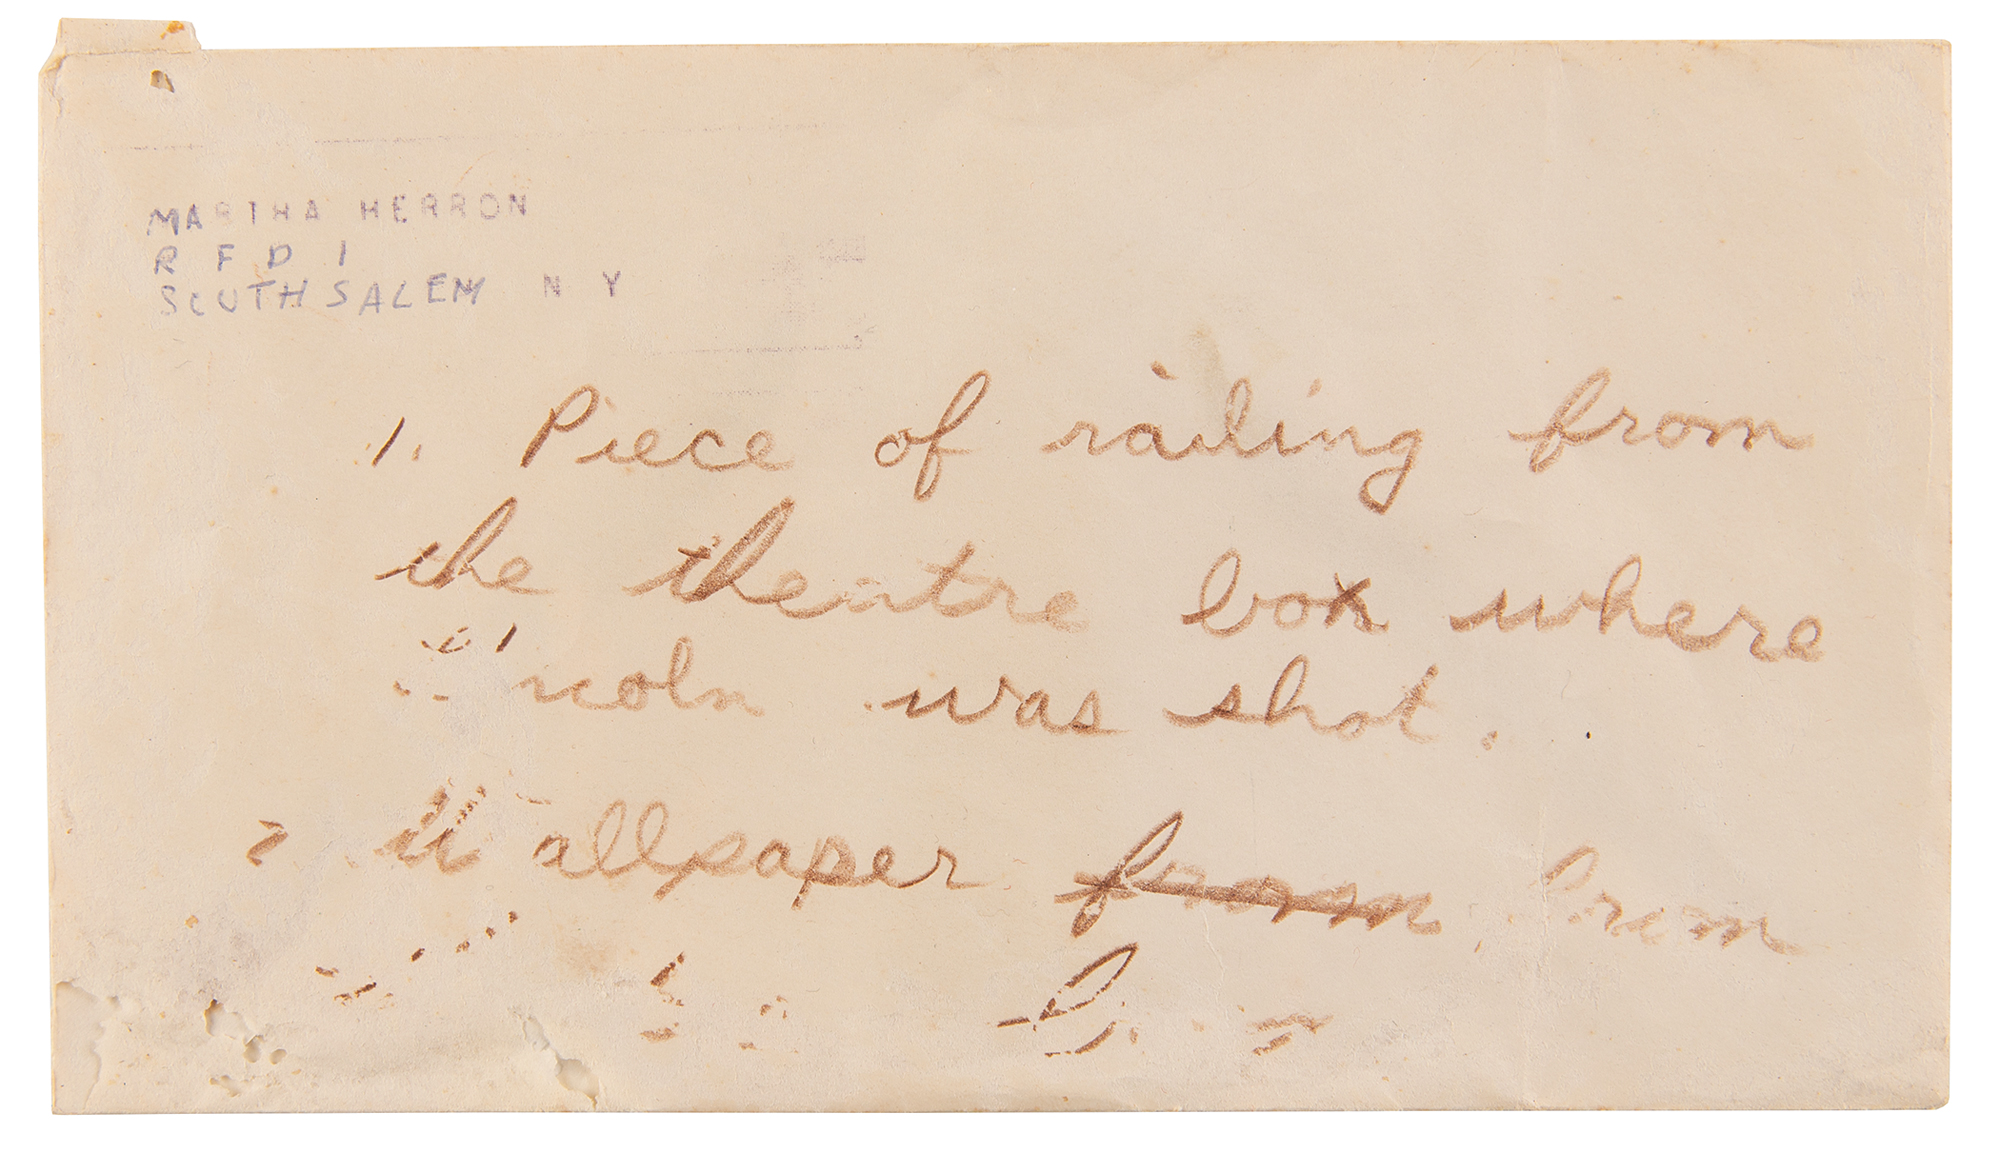 MARTHA HERRON
R F D 1
SOUTH SALEM N Y
1. Piece of railing from
the theatre box where
Lincoln was shot.
2 Wallpaper from from